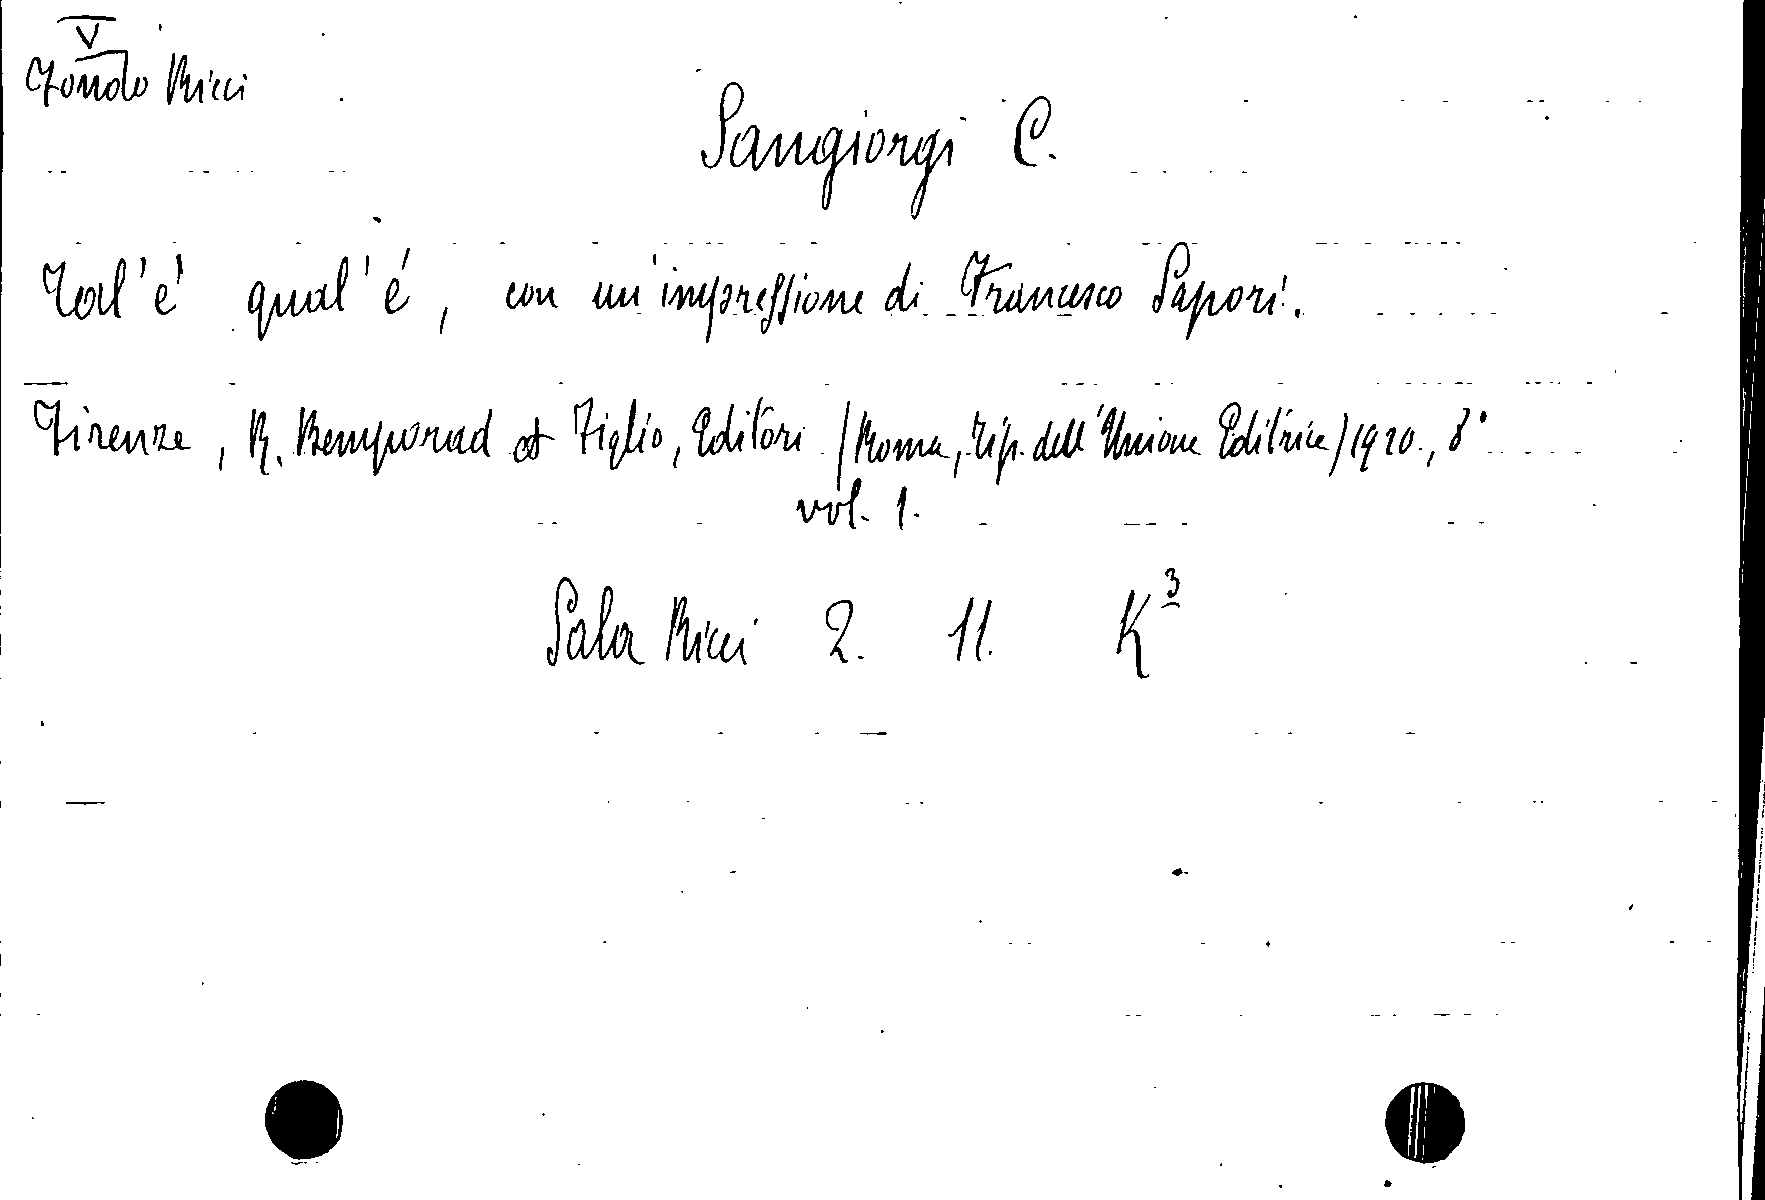 V
Fondo Ricci
Sangiorgi C.
Tal'è qual'è, con un'impressione di Francesco Sapori.
Firenze, R. Bemporad et Figlio, Editori (Roma, Tip. dell'Unione Editrice) 1920., 8°
vol. 1.
Sala Ricci 2. 11. K³